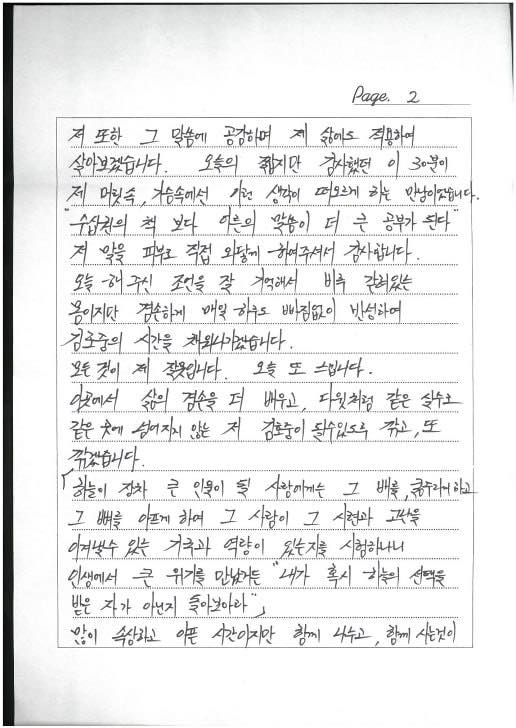 Page. 2
저 또한 그 말씀에 공감하며 제 삶에도 적용하여
살아보겠습니다. 오늘의 짧지만 감사했던 이 30분이
제 머릿속, 가슴속에서 이런 생각이 떠오르게 하는 만남이었습니다.
"수십권의 책 보다 어른의 말씀이 더 큰 공부가 된다"
저 말을 피부로 직접 와닿게 하여주셔서 감사합니다.
오늘 해주신 조언을 잘 기억해서 비록 갇혀있는
몸이지만 겸손하게 매일 하루도 빠짐없이 반성하여
김호중의 시간을 채워나가겠습니다.
모든 것이 제 잘못입니다. 오늘 또 느낍니다.
이곳에서 삶의 겸손을 더 배우고, 다윗처럼 같은 실수로
같은 곳에 넘어지지 않는 저 김호중이 될수있도록 깎고, 또
깎겠습니다.
「하늘이 장차 큰 인물이 될 사람에게는 그 배를, 굶주리게하고
그 뼈를 아프게 하여 그 사람이 그 시련과 고난을
이겨낼수 있는 기국과 역량이 있는지를 시험하나니
인생에서 큰 위기를 만났거든 "내가 혹시 하늘의 선택을
받은 자가 아닌지 돌아보아라"」
많이 속상하고 아픈 시간이지만 함께 나누고, 함께 사는것이